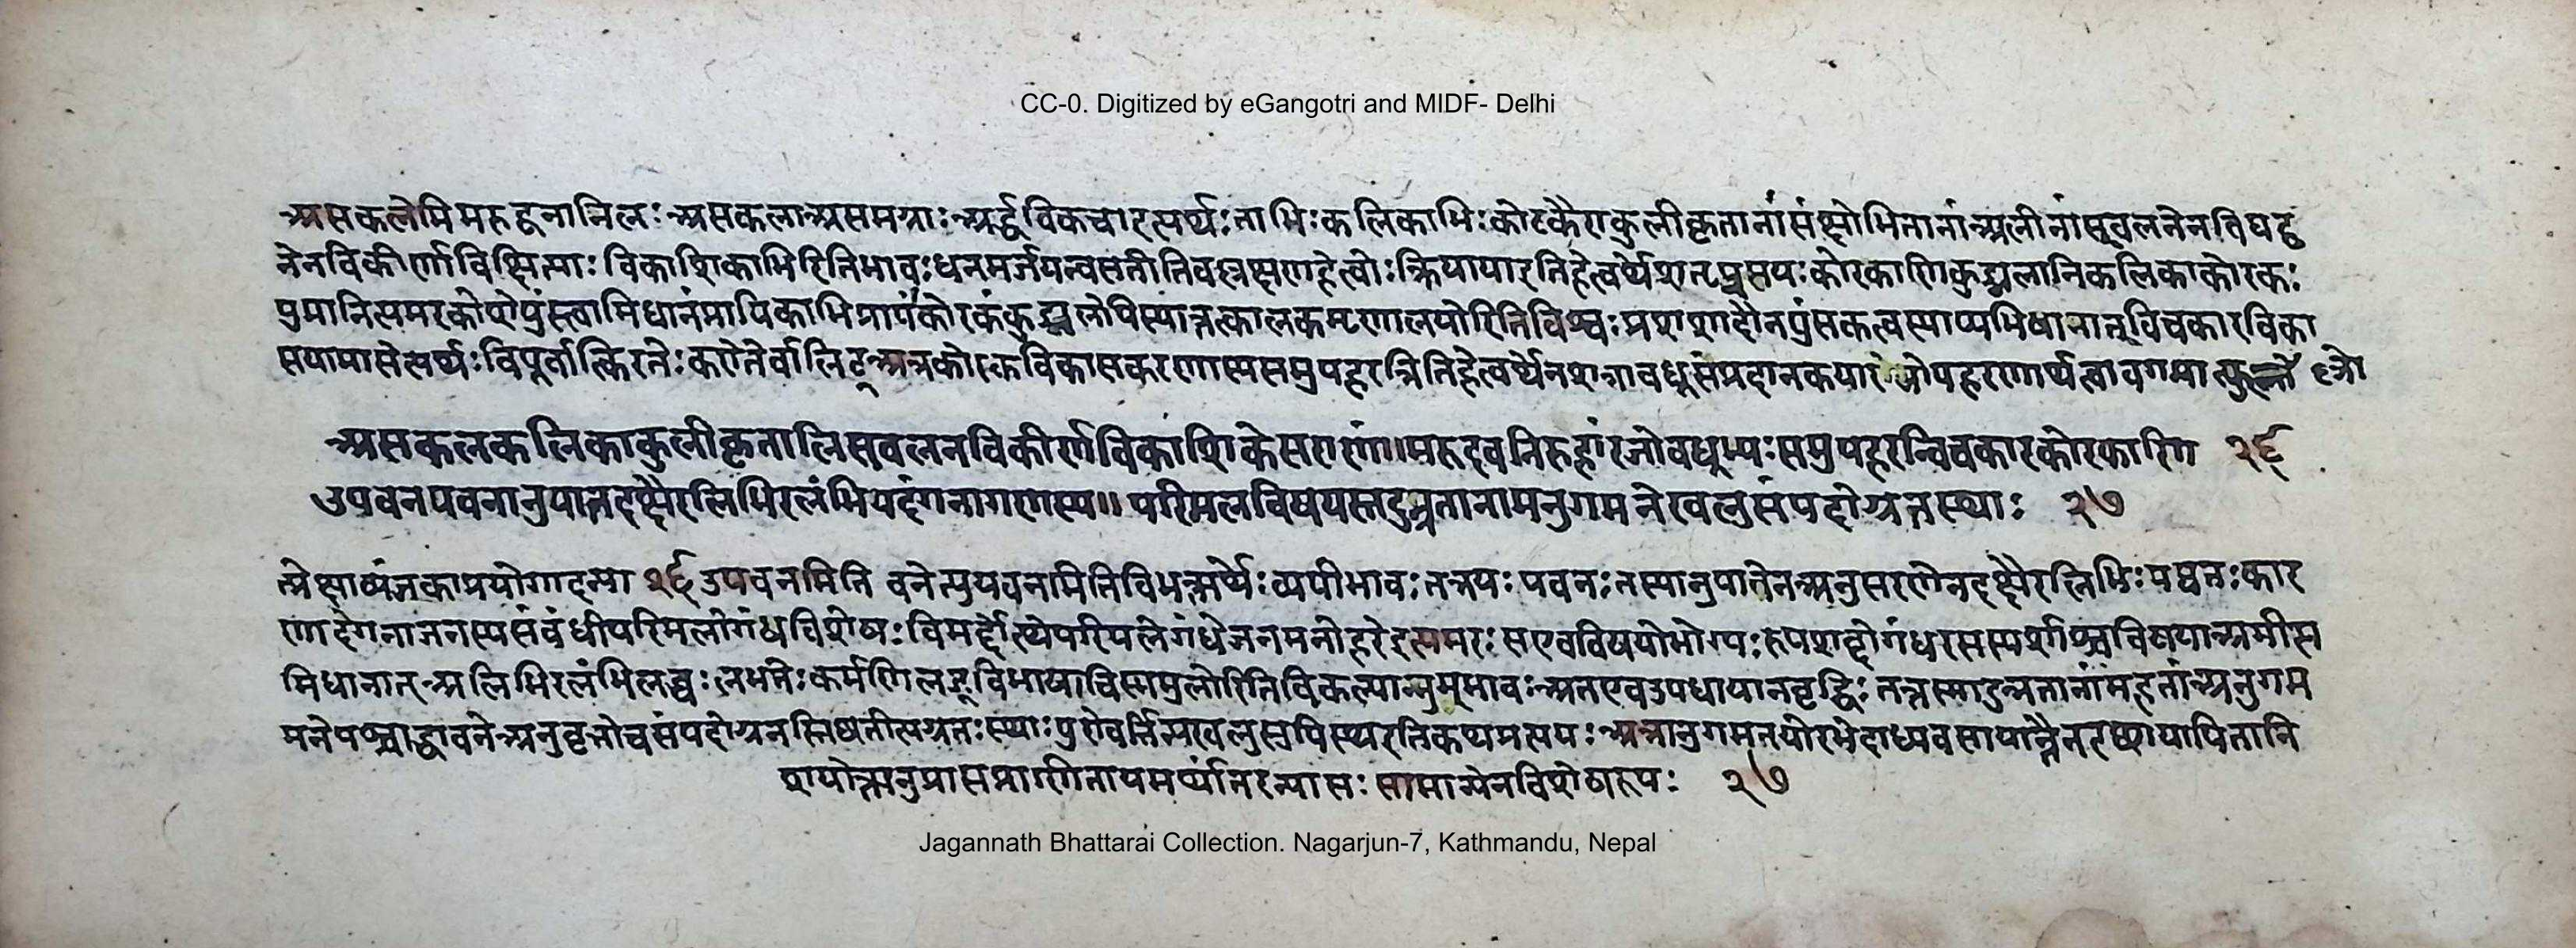 CC-0. Digitized by eGangotri and MIDF- Delhi
असकलेमिमरुद्वनानिलः असकलाअसमग्राः अर्द्धविकचाइत्यर्थः ताभिः कलिकाभिः कोरकैराकुलीकृतानां संक्षोभितानां अलीनां स्खलनेनविघट्ट
नेनविकीर्णाविक्षिप्ताः विकाशिकाभिरितिभावः धनमर्जयन्वसतीतिवल्लक्षणहेत्वोः क्रियायाइतिहेत्वर्थेशतृप्रत्ययः कोरकाणिकुड्मलानिकलिकाकोरकः
पुमानित्यमरकोशेपुंस्त्वाभिधानंप्रायिकाभिप्रायंकोरकंकुड्मलेपिस्यात्कक्कोलकमृणालयोरितिविश्वः
सयामासेत्यर्थः विपूर्वात्किरतेः कर्तरिलिट् अत्रकोरकविकासकरणस्यसमुपहरन्नितिहेत्वर्थेन
असकलकलिकाकुलीकृतालिस्खलनविकीर्णविकाशिकेसराणां॥मरुदवनिरुहांरजोवधूभ्यः समुपहरन्विचकारकोरकाणि २६
उपवनपवनानुपातदक्षैरलिभिरलंभियदंगनागणस्य॥ परिमलविषयस्तदुन्नतानामनुगमनेखलुसंपदोग्रतस्थाः २७
त्प्रेक्षाव्यंजकाप्रयोगाद्गम्या २६ उपवनमिति वनेत्युपवनमितिविभक्त्यर्थेव्ययीभावः तत्रयः पवनः तस्यानुपातेनअनुसरणेनदक्षैरलिभिः
णादंगनाजनस्यसंबंधीपरिमलोगंधविशेषः विमर्दोत्थेपरिमलोगंधेजनमनोहरेइत्यमरः सएवविषयोभोग्यः रूपशब्दोगंधरसस्पर्शाश्चविषयाअमीइत्य
भिधानात् अलिभिरलंभिलब्धः लभतेः कर्मणिलुङ् विभाषाचिण्णमुलोरितिविकल्पान्नुमभावः अतएवउपधायानवृद्धिः तत्तस्मादुन्नतानांमहतांअनुगम
मनेपश्चाद्धावनेअनुवृत्तौचसंपदोग्रतस्तिष्ठंतीत्यग्रतः स्थाः पुरोवर्तिन्यःखलुसुपिस्थइतिकप्रत्ययः अत्रानुगमनयोरभेदाध्यवसाया
शयोक्त्यनुप्रासप्राणितायमर्थांतरन्यासः सामान्येनविशेषरूपः २७
Jagannath Bhattarai Collection. Nagarjun-7, Kathmandu, Nepal